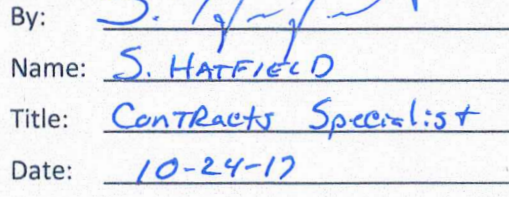 By: S.
Name: S. HATFIELD
Title: Contracts Specialist
Date: 10-24-17